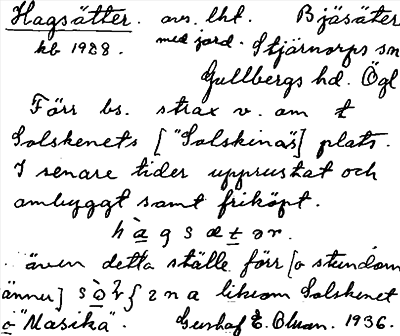 Hagsätter. avs. lht. Bjäsäter
kb 1928. med jord. Stjärnorps sn
Gullbergs hd. Ögl
Förr bs. strax v. om t
Solskenets ["Solskinäs] plats.
I senare tider upprustat och
ombyggt samt friköpt.
h à g s æ t ər.
även detta ställe förr [o stundom
ännu] s liksom Solskenet
o "Masika". Gustaf E. Olsson. 1936.